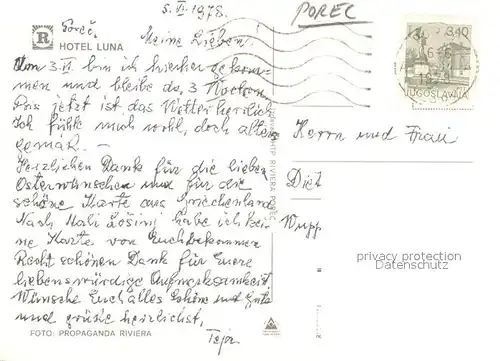 5. VI. 1978.
POREC
Poreč,
R
HOTEL LUNA
Meine Lieben!
Am 3. VI. bin ich hierher gekom-
men und bleibe da, 3 Wochen
Bis jetzt ist das Wetter herrlich
Ich fühle mich wohl, doch alters
gemäß. —
Herzlichen Dank für die lieben
Osterwünschen und für die
schöne Karte aus Griechenland
Nach Mali Lošinj habe ich kei-
ne Karte von Euch bekommen
Recht schönen Dank für Euere
liebenswürdige Aufmerksamkeit.
Wünsche Euch alles Schöne und Gute
und grüße herzlichst,
FOTO: PROPAGANDA RIVIERA
HTP RIVIERA POREČ
3.40
JUGOSLAVIJA
Herrn und Frau
Diet
Wupp
privacy protection
Datenschutz